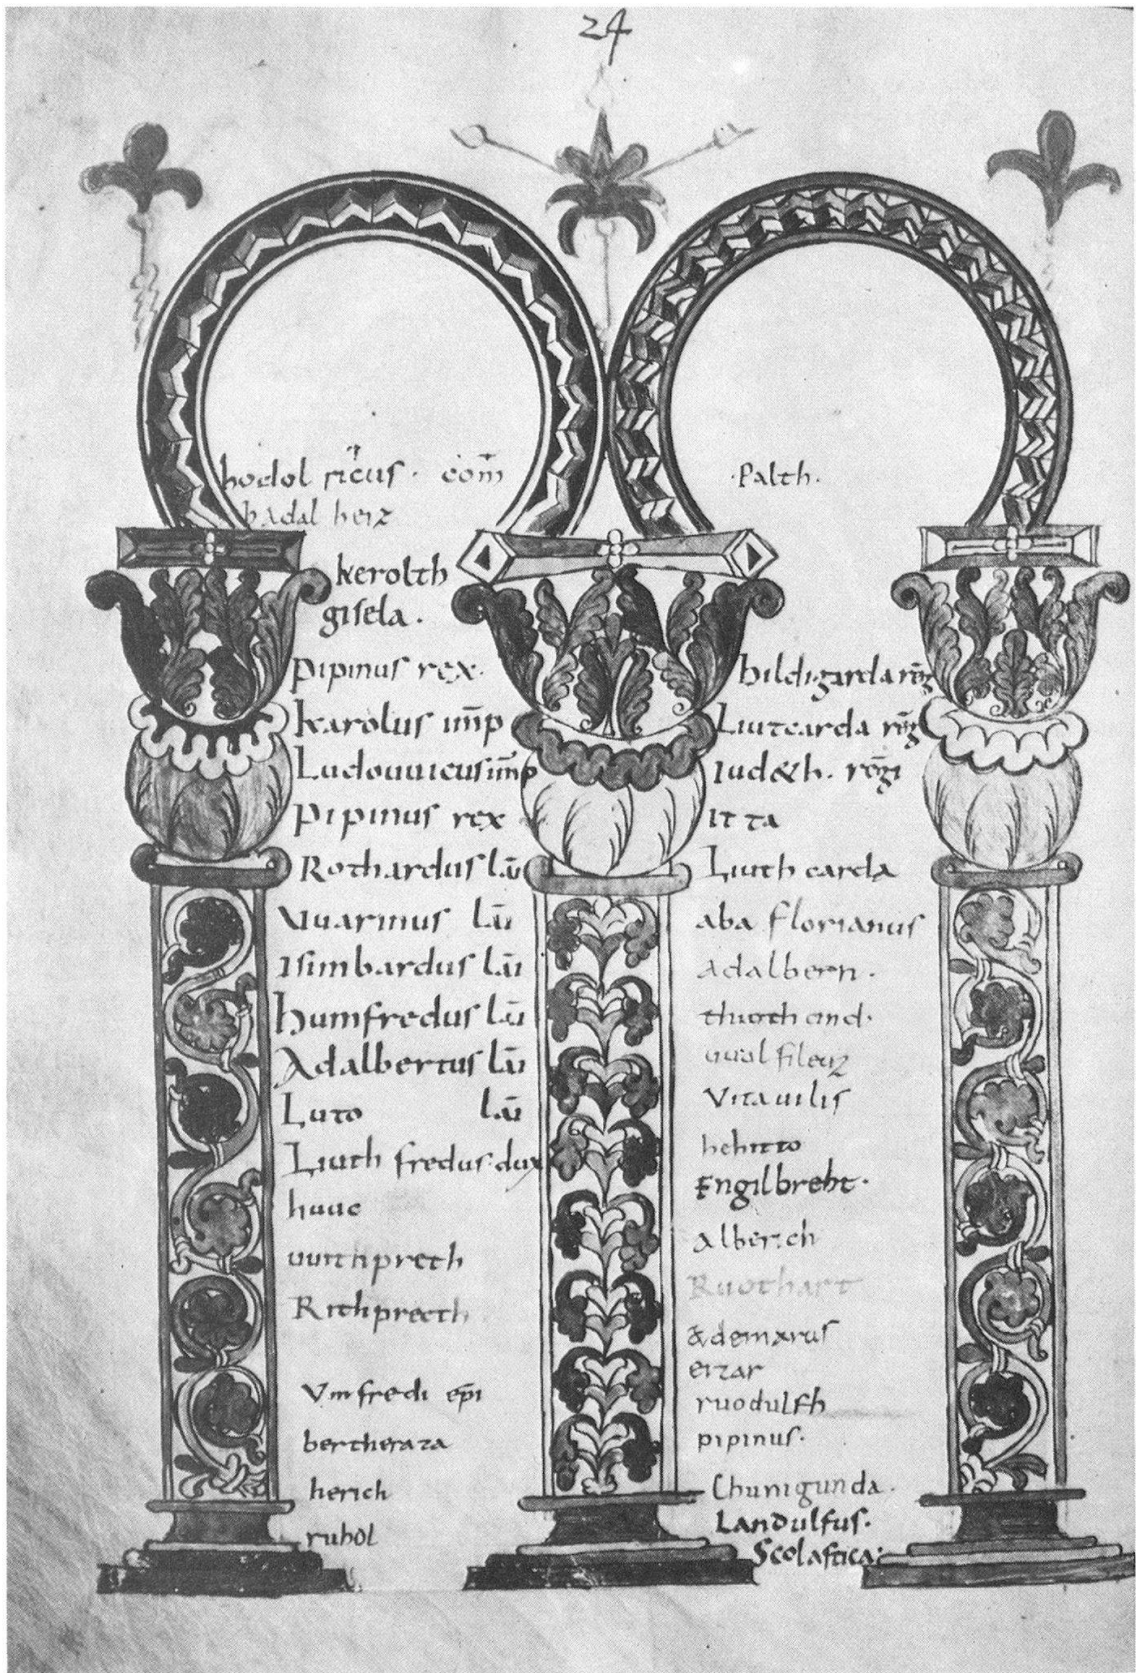 24
hodolricus · com̅
hadal herz
kerolth
gisela ·
pipinus rex ·
karolus im̅p
Ludouuicus im̅p
pipinus rex
Rothardus laū
Vuarinus laū
Isimbardus laū
humfredus laū
Adalbertus laū
Luto laū
Liuthfredus · dux
huuc
uuithpreth
Rithpreeth
Vmfredi ep̅i
bertheraza
herich
ruhol
· Palth ·
hildigarda reḡ
Liutcarda reḡ
Iud&h · reḡi
Itta
Liuthcarda
aba florianus
Adalbern ·
Vitauilis
hehitto
Engilbreht ·
Alberich
Ruothart
&demarus
erzar
ruodulfh
pipinus ·
Chunigunda ·
Landulfus ·
Scolastica ·